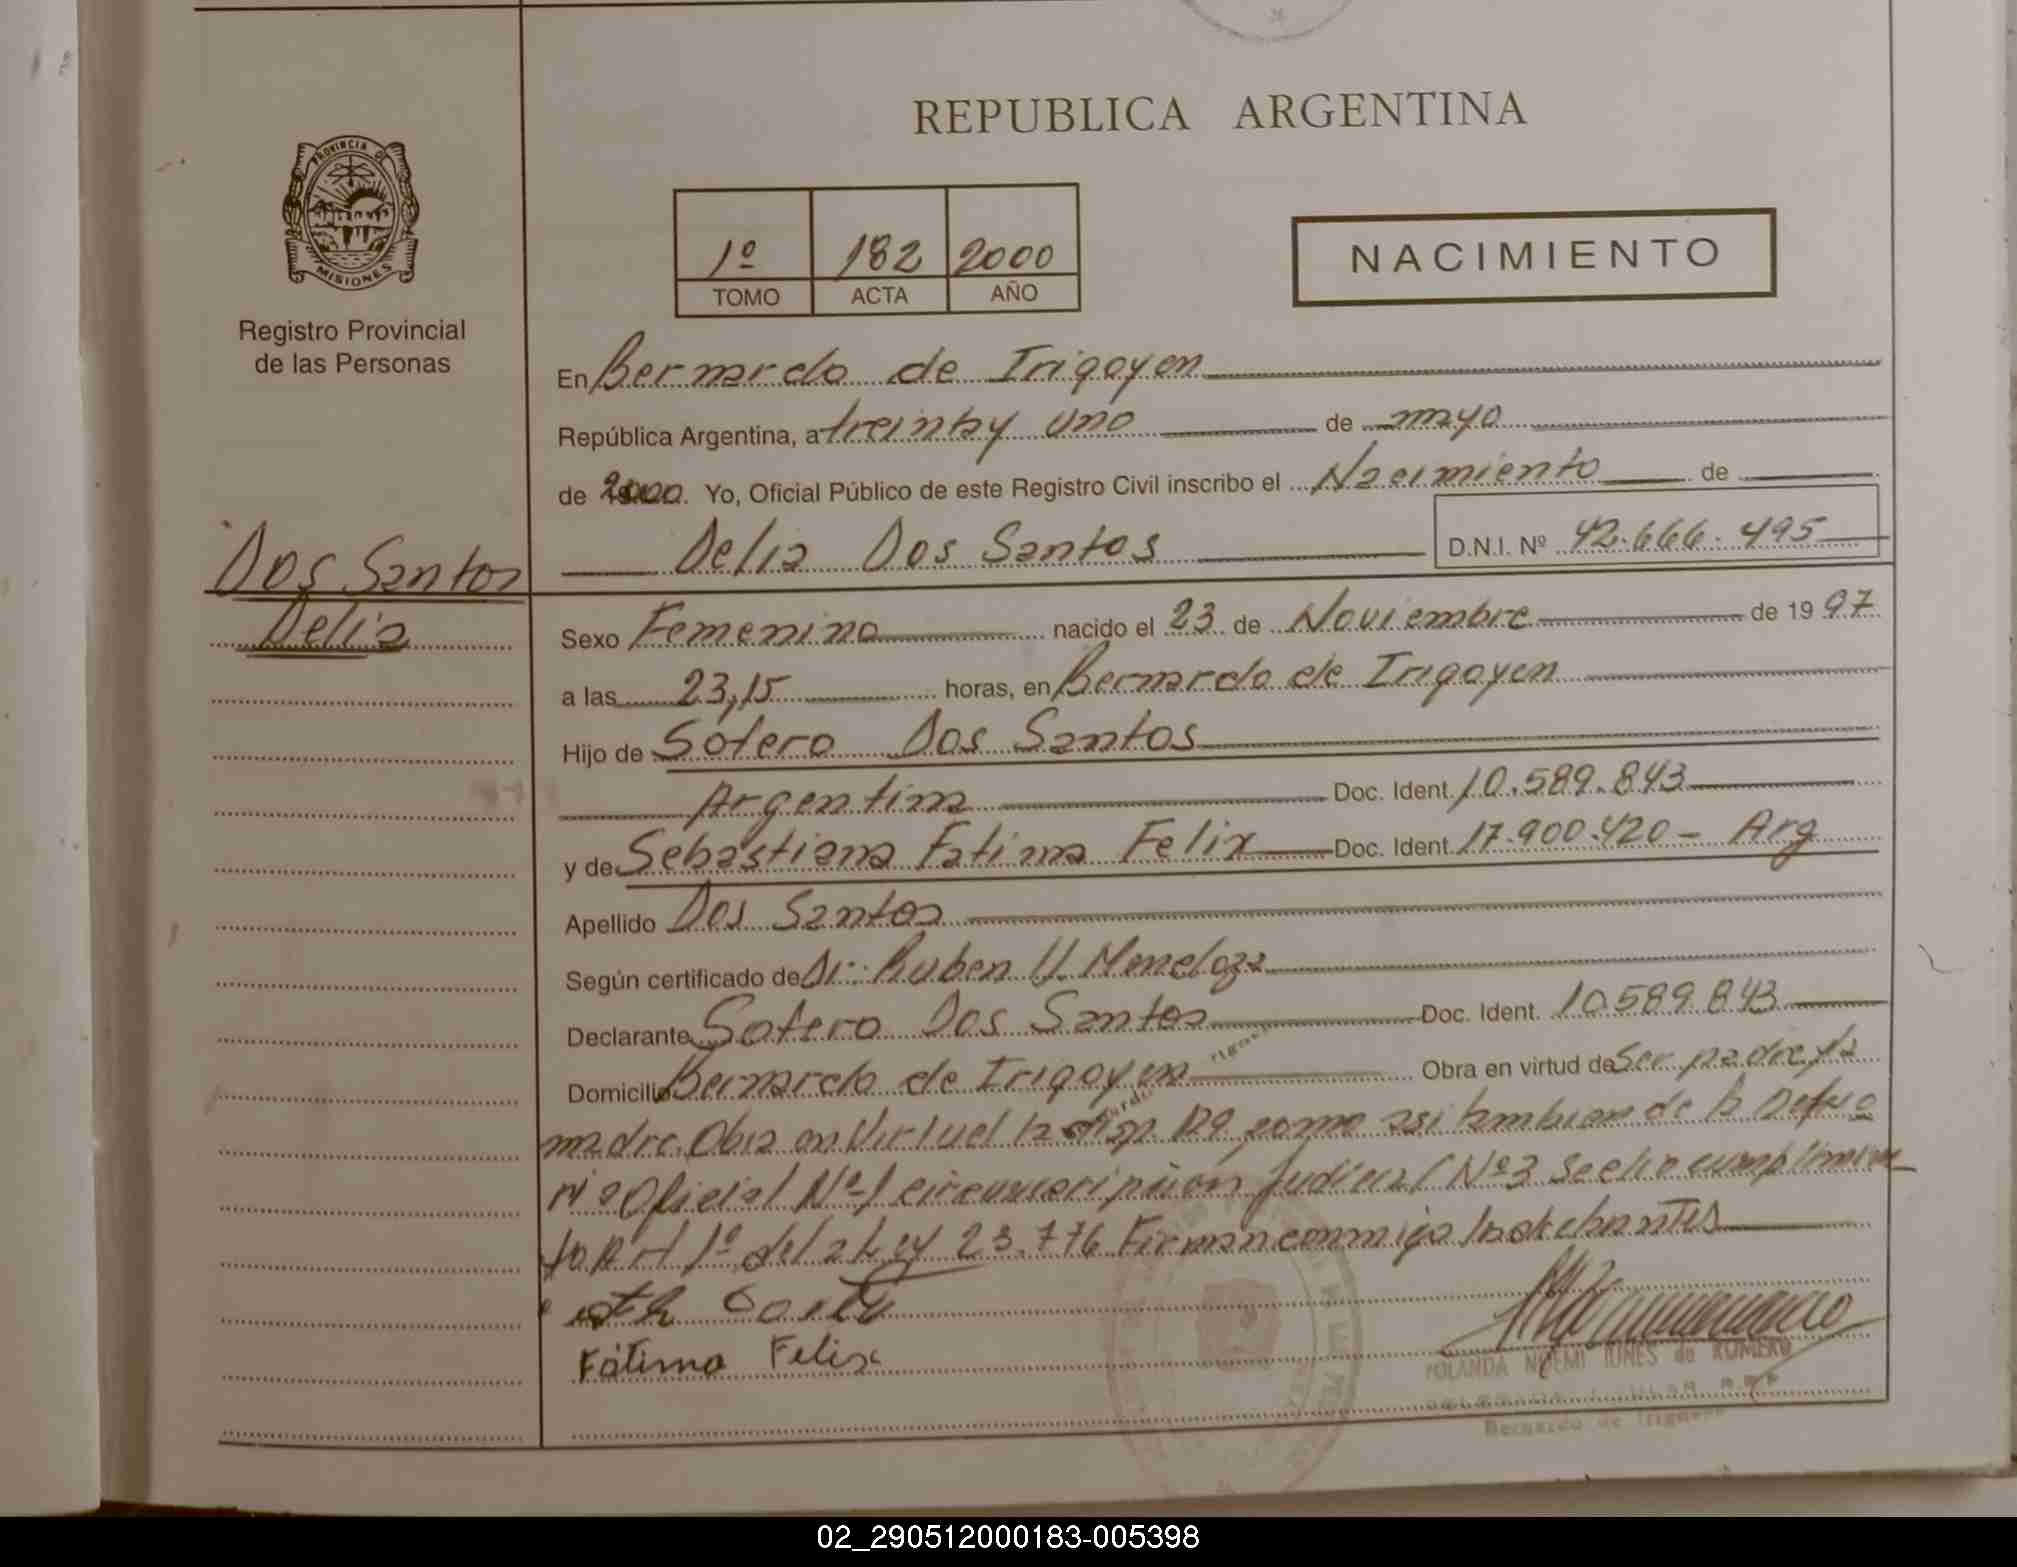 REPUBLICA ARGENTINA
PROVINCIA DE
MISIONES
Registro Provincial
de las Personas
1º 182 2000
TOMO ACTA AÑO
NACIMIENTO
En Bernardo de Irigoyen
República Argentina, a treinta y uno de mayo
de 2000. Yo, Oficial Público de este Registro Civil inscribo el Nacimiento de
Delia Dos Santos D.N.I. Nº 42.666.495
Dos Santos
Delia
Sexo Femenino nacido el 23 de Noviembre de 1997
a las 23,15 horas, en Bernardo de Irigoyen
Hijo de Sotero Dos Santos
Argentina Doc. Ident. 10.589.843
y de Sebastiana Fatima Felix Doc. Ident. 17.900.420 - Arg
Apellido Dos Santos
Según certificado de Dr. Ruben U. Mendoza
Declarante Sotero Dos Santos Doc. Ident. 10.589.843
Domicilio Bernardo de Irigoyen Obra en virtud de Ser padre y la
madre. Obra en Virtud la disp. como asi tambien de la
Oficial Nº 1 circunscripcion Judicial Nº 3 Se dio cumplimien
to Art 1º de la Ley 23.776 Firman conmigo
Fátima Felix
YOLANDA NOEMI de ROMERO
Bernardo de Irigoyen
02_290512000183-005398